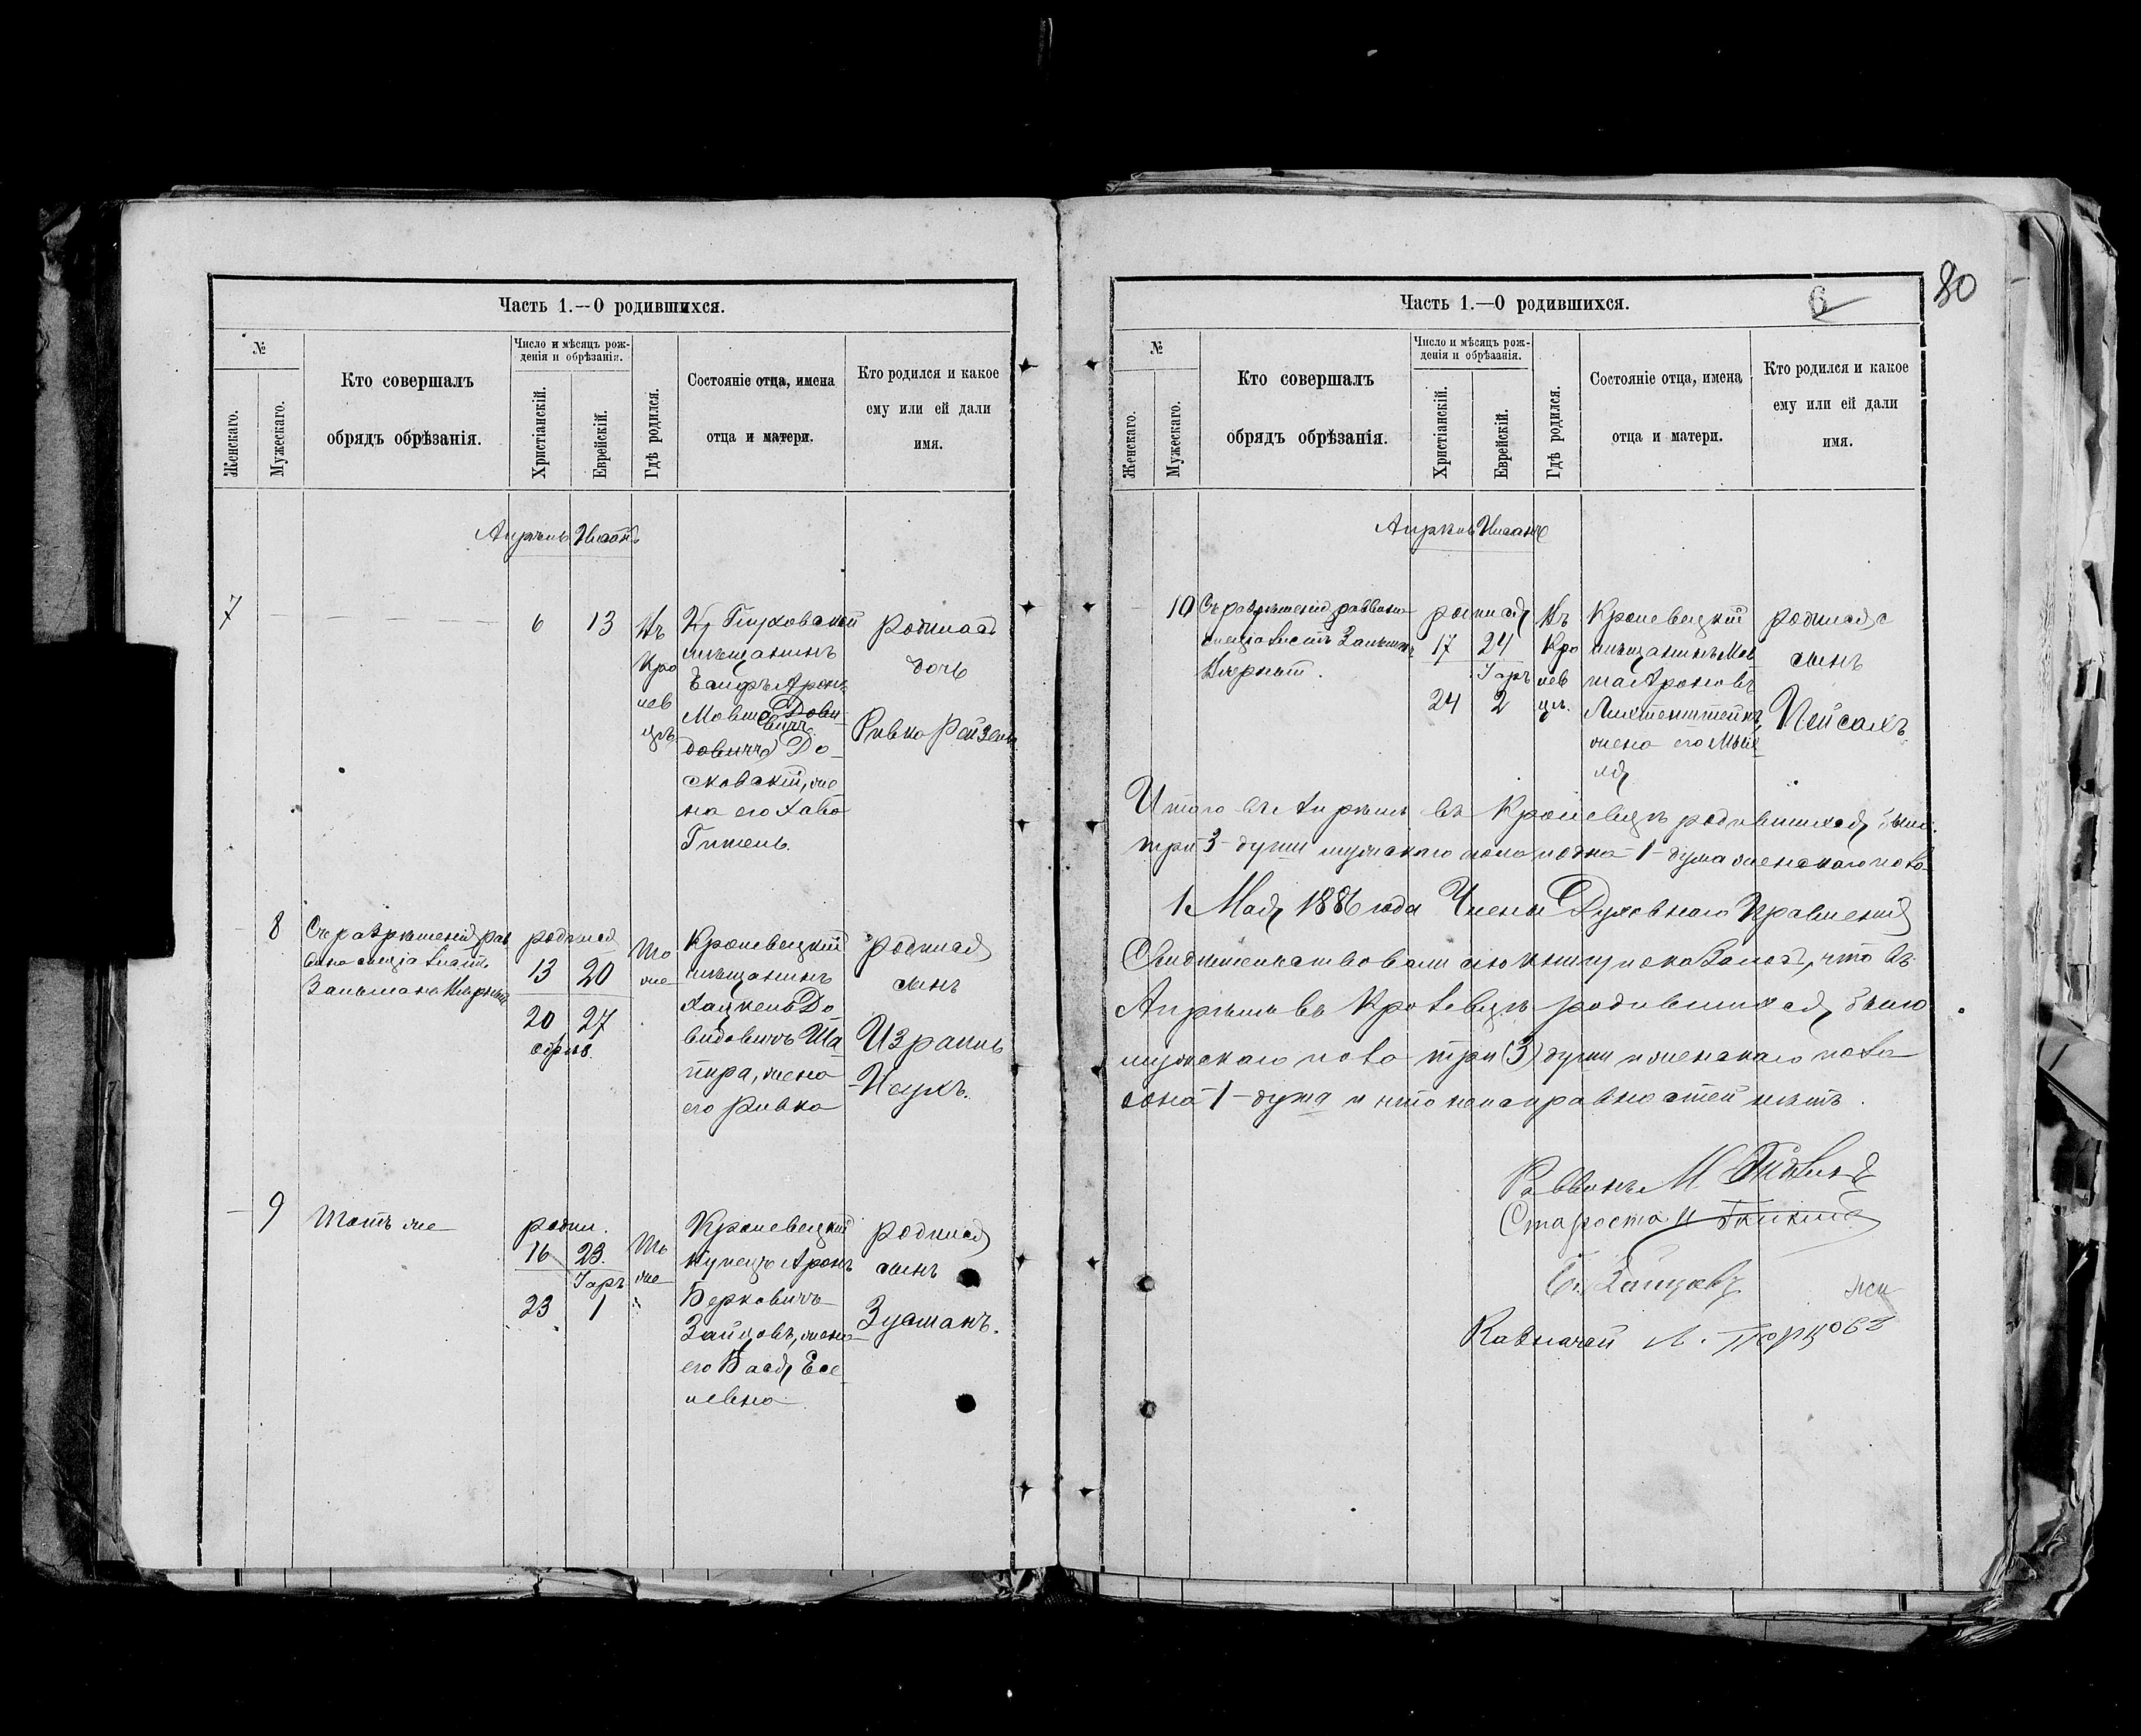 Часть 1.—О родившихся.
№
Женскаго.
Мужескаго.
Кто совершалъ
обрядъ обрѣзанія.
Число и мѣсяцъ рож-
денія и обрѣзанія.
Христіанскій.
Еврейскій.
Гдѣ родился.
Состояніе отца, имена
отца и матери.
Кто родился и какое
ему или ей дали
имя.
Апрѣль Нисанъ
7
6
13
Въ
Кро
лев
цѣ
Глуховскій
мѣщанинъ
Аронъ
Мовшо
До-
сковскій, же
на его Хава
Родилась
дочь
Ривка Рейзель
8
Съ разрѣшенія рав
вина спеціалистъ
Зальмана
родился
13 20
20 27
обрѣз.
То
же
Кролевецкій
мѣщанинъ
Хацкель До
видовичъ Ша-
пира, жена
его Ривка
родился
сынъ
Израиль
Нсухъ.
9
Тотъ же
родил.
16 23.
Іаръ
23 1
То
же
Кролевецкій
купецъ Аронъ
Берковичъ
Зайцовъ, жена
его Бася Есе-
левна
родился
сынъ
Зусманъ.
80
6
Часть 1.—О родившихся.
№
Женскаго.
Мужескаго.
Кто совершалъ
обрядъ обрѣзанія.
Число и мѣсяцъ рож-
денія и обрѣзанія.
Христіанскій.
Еврейскій.
Гдѣ родился.
Состояніе отца, имена
отца и матери.
Кто родился и какое
ему или ей дали
имя.
Апрѣль Нисанъ
10
Съ разрѣшенія раввина
спеціалистъ Зальманъ
родился
17 24
Іаръ
24 2
Въ
Кро
лев
цѣ.
Кролевецкій
мѣщанинъ Мов
ша Ароновъ
Лихтенштейнъ,
жена его
родился
сынъ
Пейсахъ
Итого въ Апрѣлѣ въ Кролевцѣ родившихся было
три 3 души мужскаго пола и одна 1 душа женскаго пола
1 Мая 1886 года Члены Духовнаго Правленія
Свидѣтельствовали сію книгу и оказалось, что въ
Апрѣлѣ въ Кролевцѣ родившихся было
мужскаго пола три (3) души и женскаго пола
одна 1 душа и что неисправностей нѣтъ.
Раввинъ М.
Староста И
Б. Зайцовъ
Казначей Л. Перцовъ